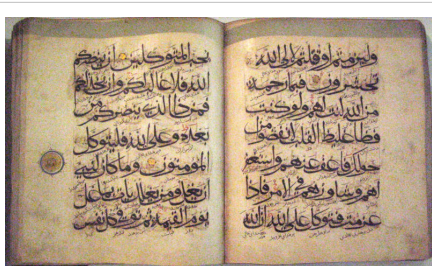 ولئن متم او قتلتم لالى الله
تحشرون فبما رحمة
من الله لنت لهم ولو كنت
فظا غليظ القلب لانفضوا من
حولك فاعف عنهم واستغفر
لهم وشاورهم في الامر فاذا
عزمت فتوكل على الله ان الله
يحب المتوكلين ان ينصركم
الله فلا غالب لكم وان يخذلكم
فمن ذا الذي ينصركم من
بعده وعلى الله فليتوكل
المؤمنون وما كان لنبي
ان يغل ومن يغلل يات بما غل
يوم القيمة ثم توفى كل نفس